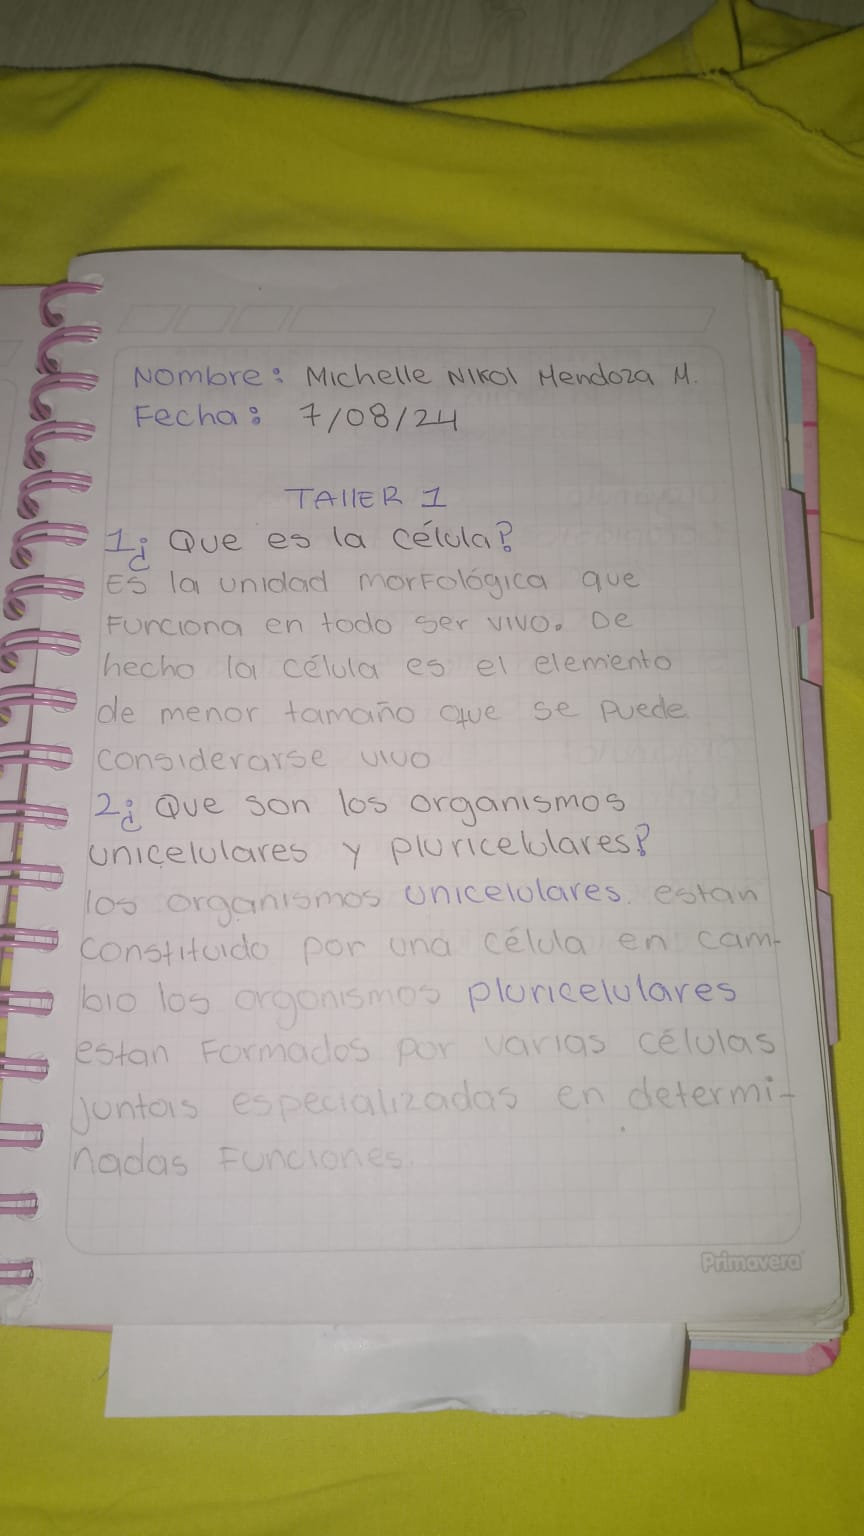 Nombre: Michelle Nikol Mendoza M.
Fecha: 7/08/24
TALLER 1
1¿ Que es la célula?
Es la unidad morfológica que
funciona en todo ser vivo. De
hecho la célula es el elemento
de menor tamaño que se puede
considerarse vivo
2¿ Que son los organismos
unicelulares y pluricelulares?
los organismos unicelulares. estan
constituido por una célula en cam-
bio los organismos pluricelulares
estan formados por varias células
juntas especializadas en determi-
nadas funciones.
Primavera